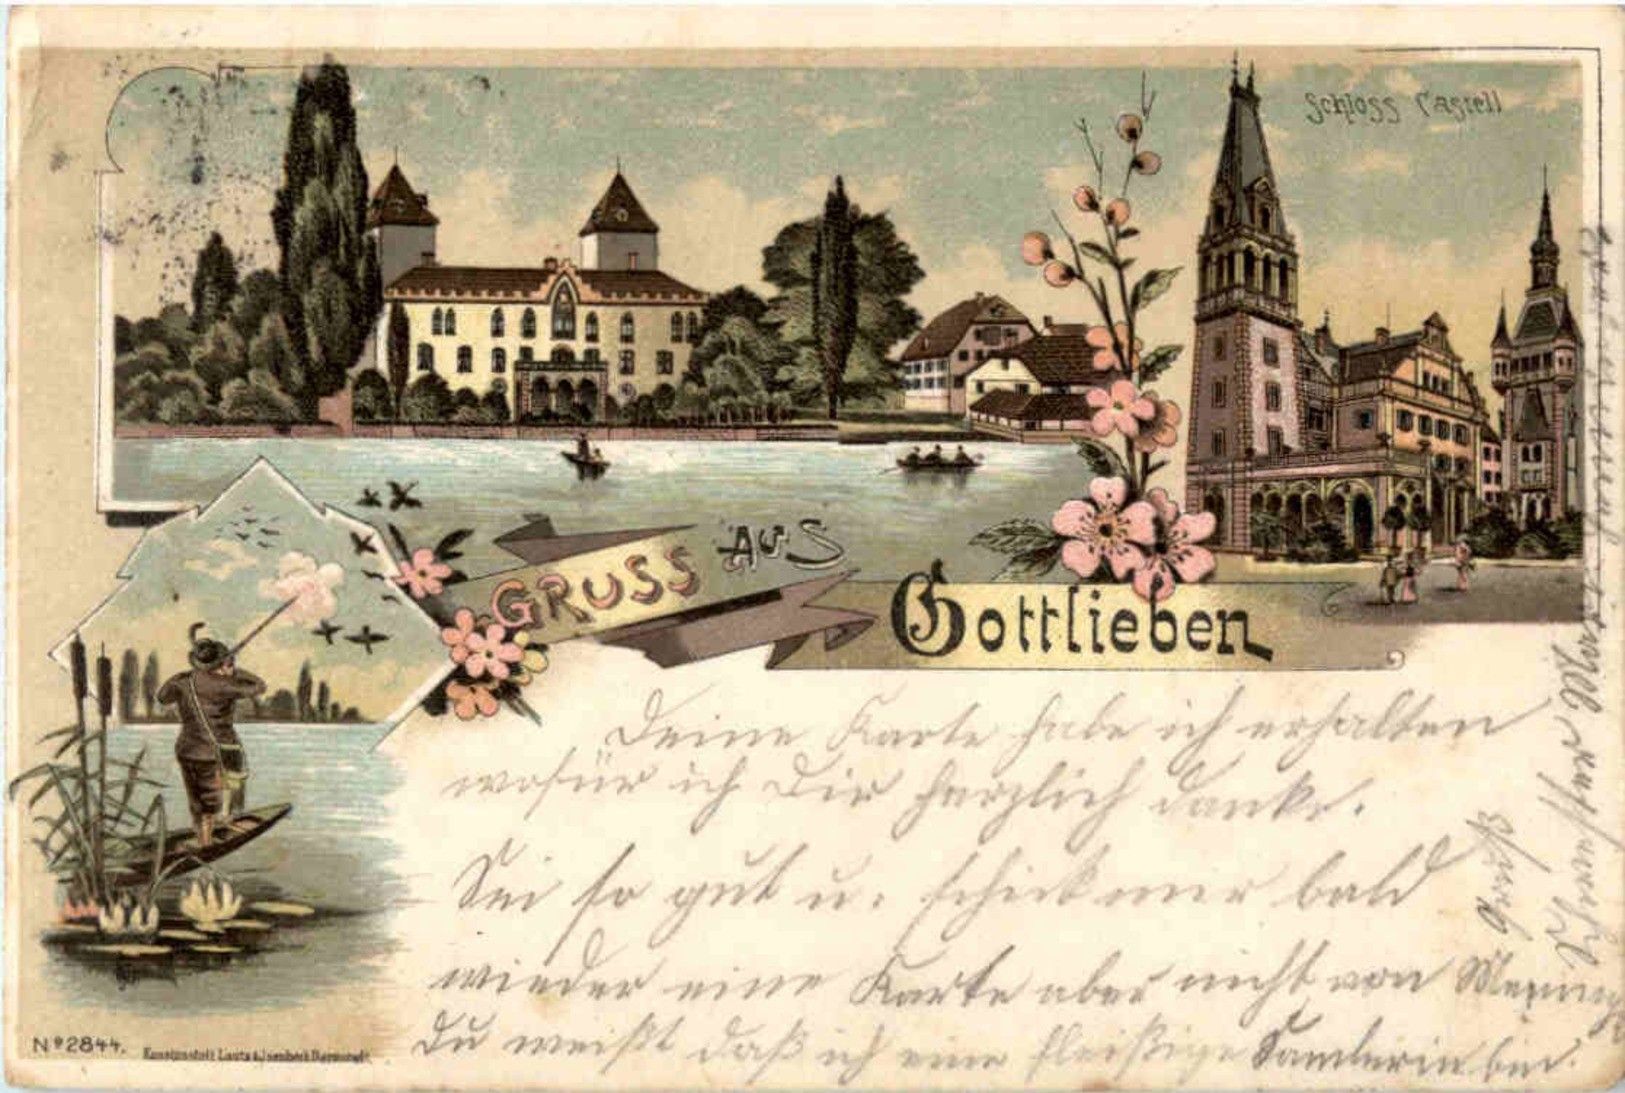 Schloss Castell
GRUSS AUS
Gottlieben
Deine Karte habe ich erhalten
wofür ich Dir herzlich danke.
Sei so gut u. schick mir bald
wieder eine Karte aber nicht von
Du weißt daß ich eine fleißige Samlerin bin.
Gruß
Nº 2844.
Kunstanstalt Lautz & Isenbeck Darmstadt.